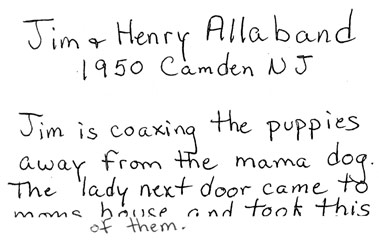 Jim & Henry Allaband
1950 Camden NJ
Jim is coaxing the puppies
away from the mama dog.
The lady next door came to
moms house and took this
of them.